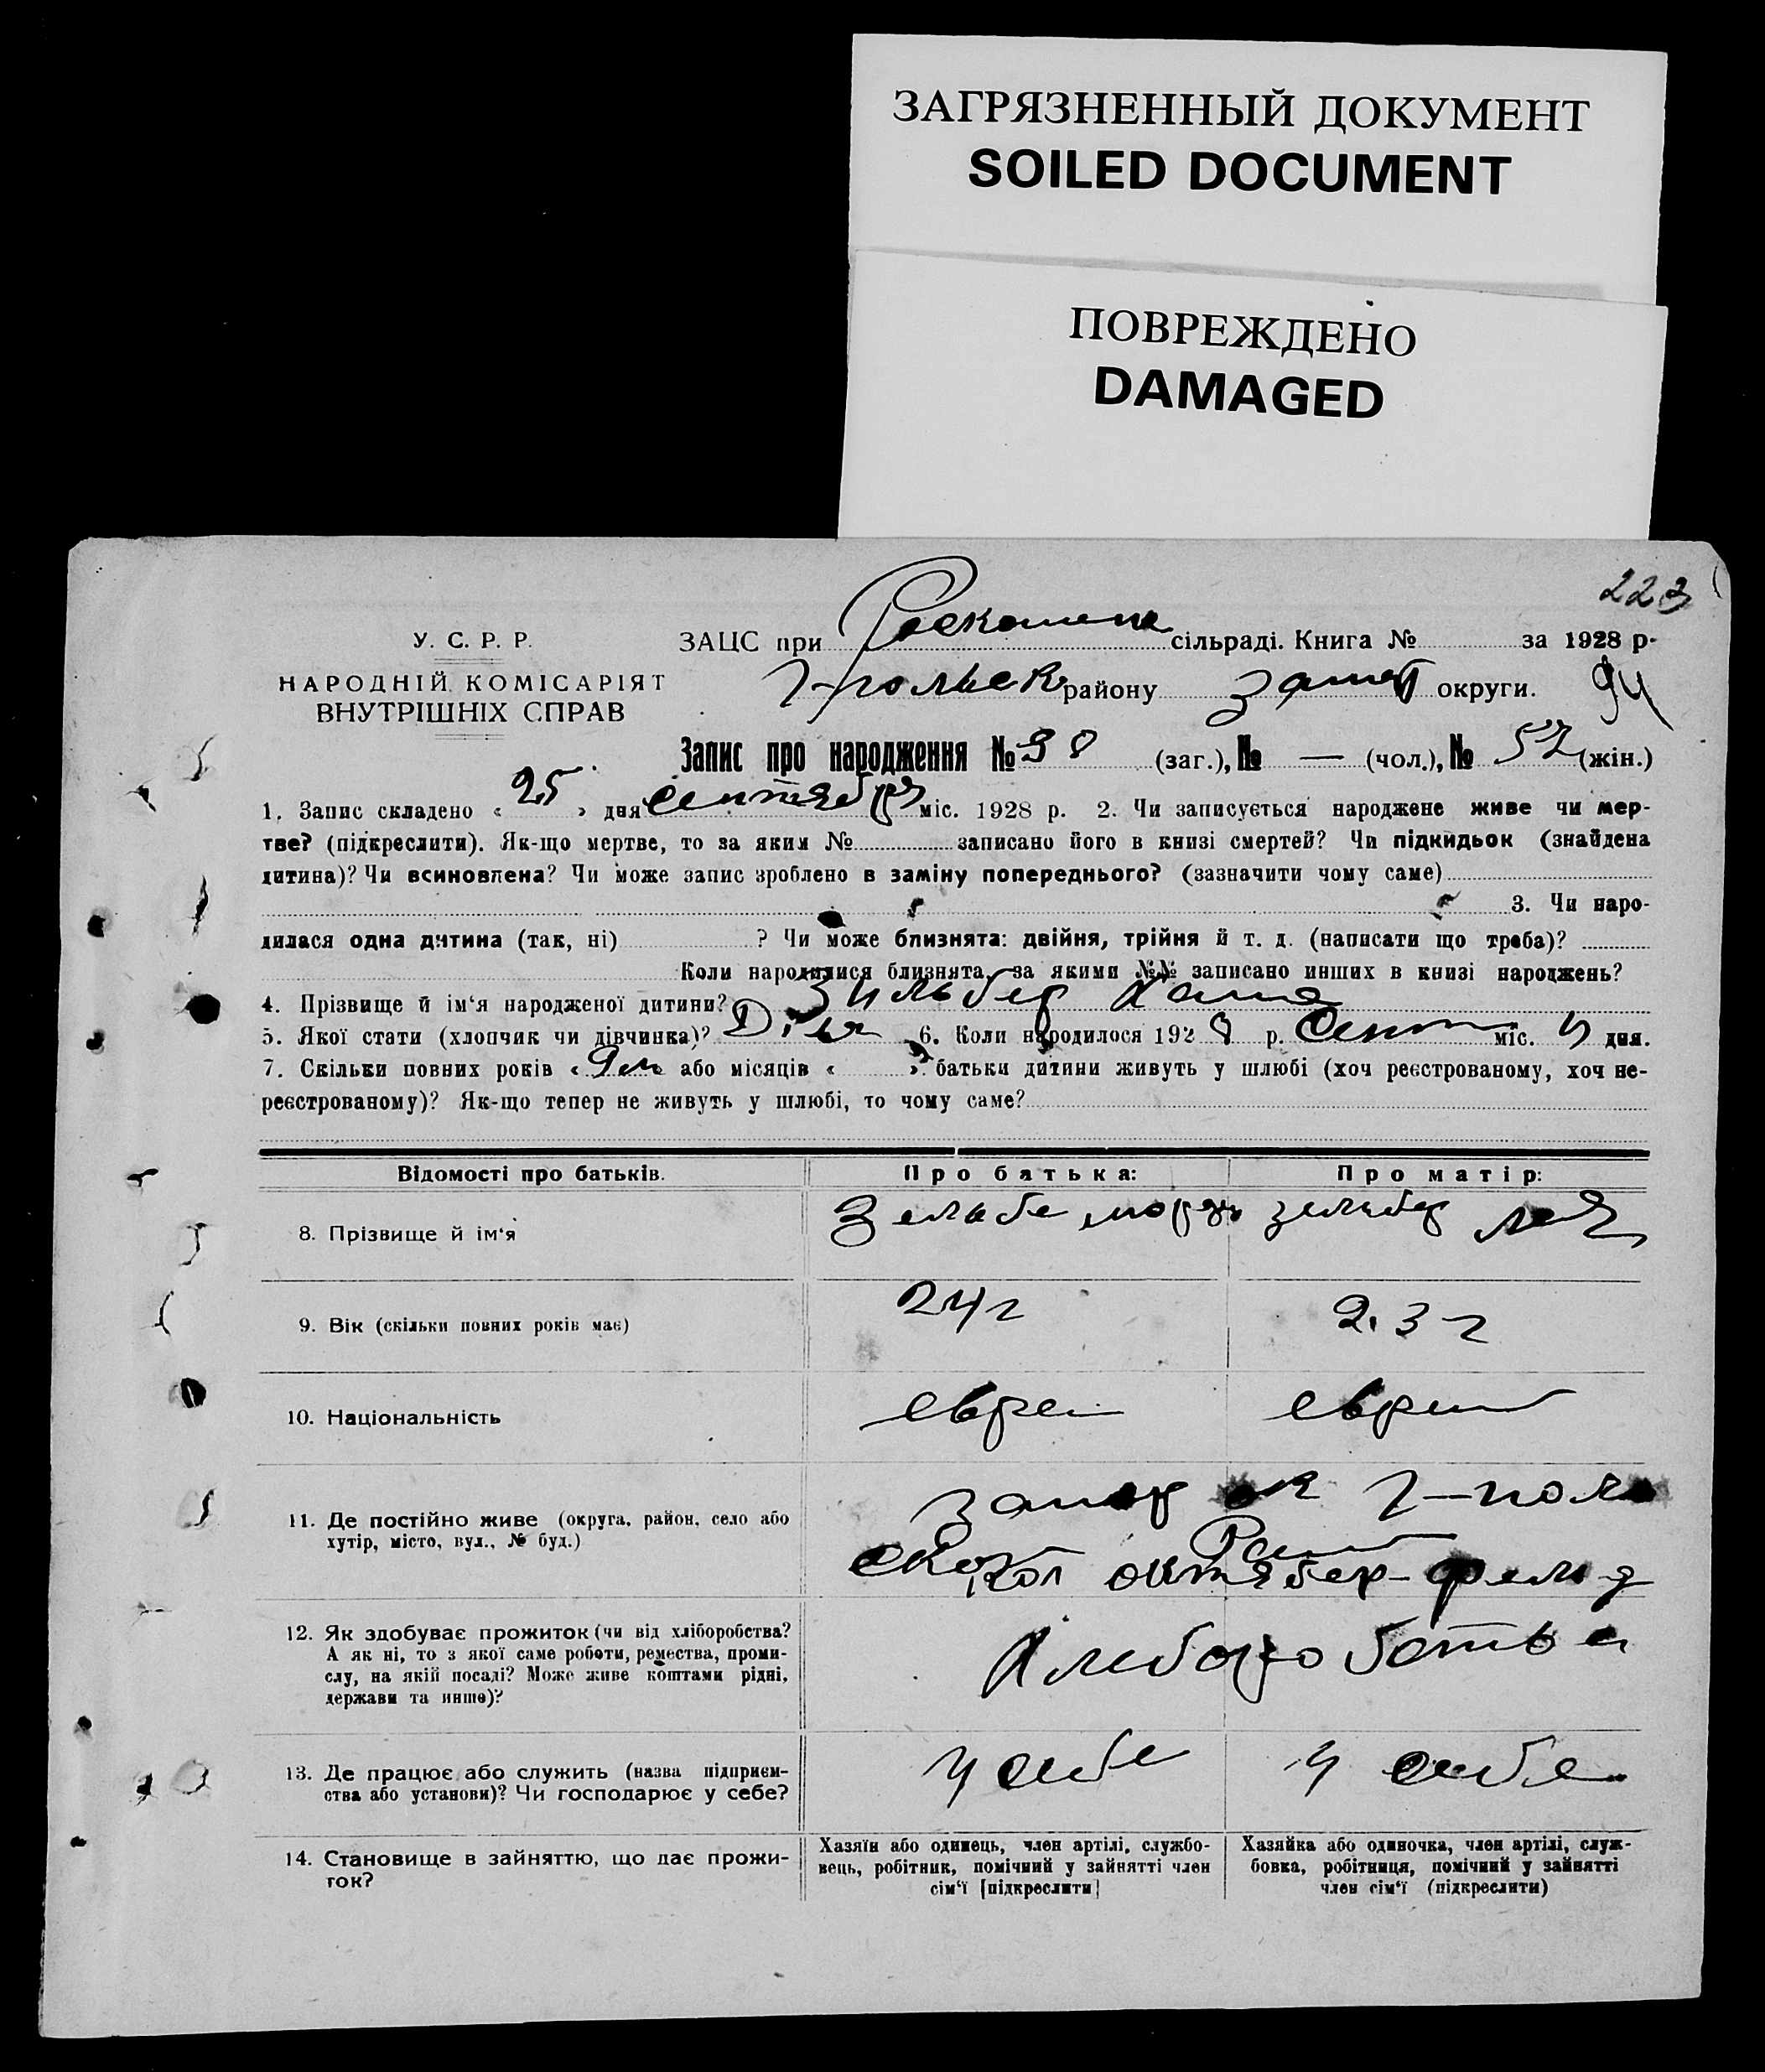 ЗАГРЯЗНЕННЫЙ ДОКУМЕНТ
SOILED DOCUMENT
ПОВРЕЖДЕНО
DAMAGED
223
У. С. Р. Р.
НАРОДНІЙ КОМІСАРІЯТ
ВНУТРІШНІХ СПРАВ
ЗАЦС при сільраді. Книга № за 1928 р.
району округи. 94
Запис про народження № 98 (заг.), № — (чол.), № 52 (жін.)
1. Запис складено « 25 » дня Сентября міс. 1928 р. 2. Чи записується народжене живе чи мер-
тве? (підкреслити). Як-що мертве, то за яким № записано його в книзі смертей? Чи підкидьок (знайдена
дитина)? Чи всиновлена? Чи може запис зроблено в заміну попереднього? (зазначити чому саме)
3. Чи наро-
дилася одна дитина (так, ні) ? Чи може близнята: двійня, трійня й т. д. (написати що треба)?
Коли народилися близнята, за якими №№ записано инших в книзі народжень?
4. Прізвище й ім‘я народженої дитини? Зильбер Хана
5. Якої стати (хлопчик чи дівчинка)? 6. Коли народилося 1928 р. Сент міс. 4 дня.
7. Скільки повних років « » або місяців « » батьки дитини живуть у шлюбі (хоч реєстрованому, хоч не-
реєстрованому)? Як-що тепер не живуть у шлюбі, то чому саме?
Відомості про батьків. Про батька: Про матір:
8. Прізвище й ім‘я Зельбе зельбер Лея
9. Вік (скільки повних років має) 24 г 23 г
10. Національність еврей еврей
11. Де постійно живе (округа, район, село або
хутір, місто, вул., № буд.)
кол октябер-фельд
12. Як здобуває прожиток (чи від хліборобства?
А як ні, то з якої саме роботи, ремества, проми-
слу, на якій посаді? Може живе коштами рідні,
держави та инше)?
13. Де працює або служить (назва підприєм-
ства або установи)? Чи господарює у себе? у себе у себе
14. Становище в зайняттю, що дає прожи-
ток?
Хазяїн або одинець, член артілі, службо-
вець, робітник, помічний у зайнятті член
сім‘ї [підкреслити]
Хазяйка або одиночка, член артілі, служ-
бовка, робітниця, помічний у зайнятті
член сім‘ї (підкреслити)